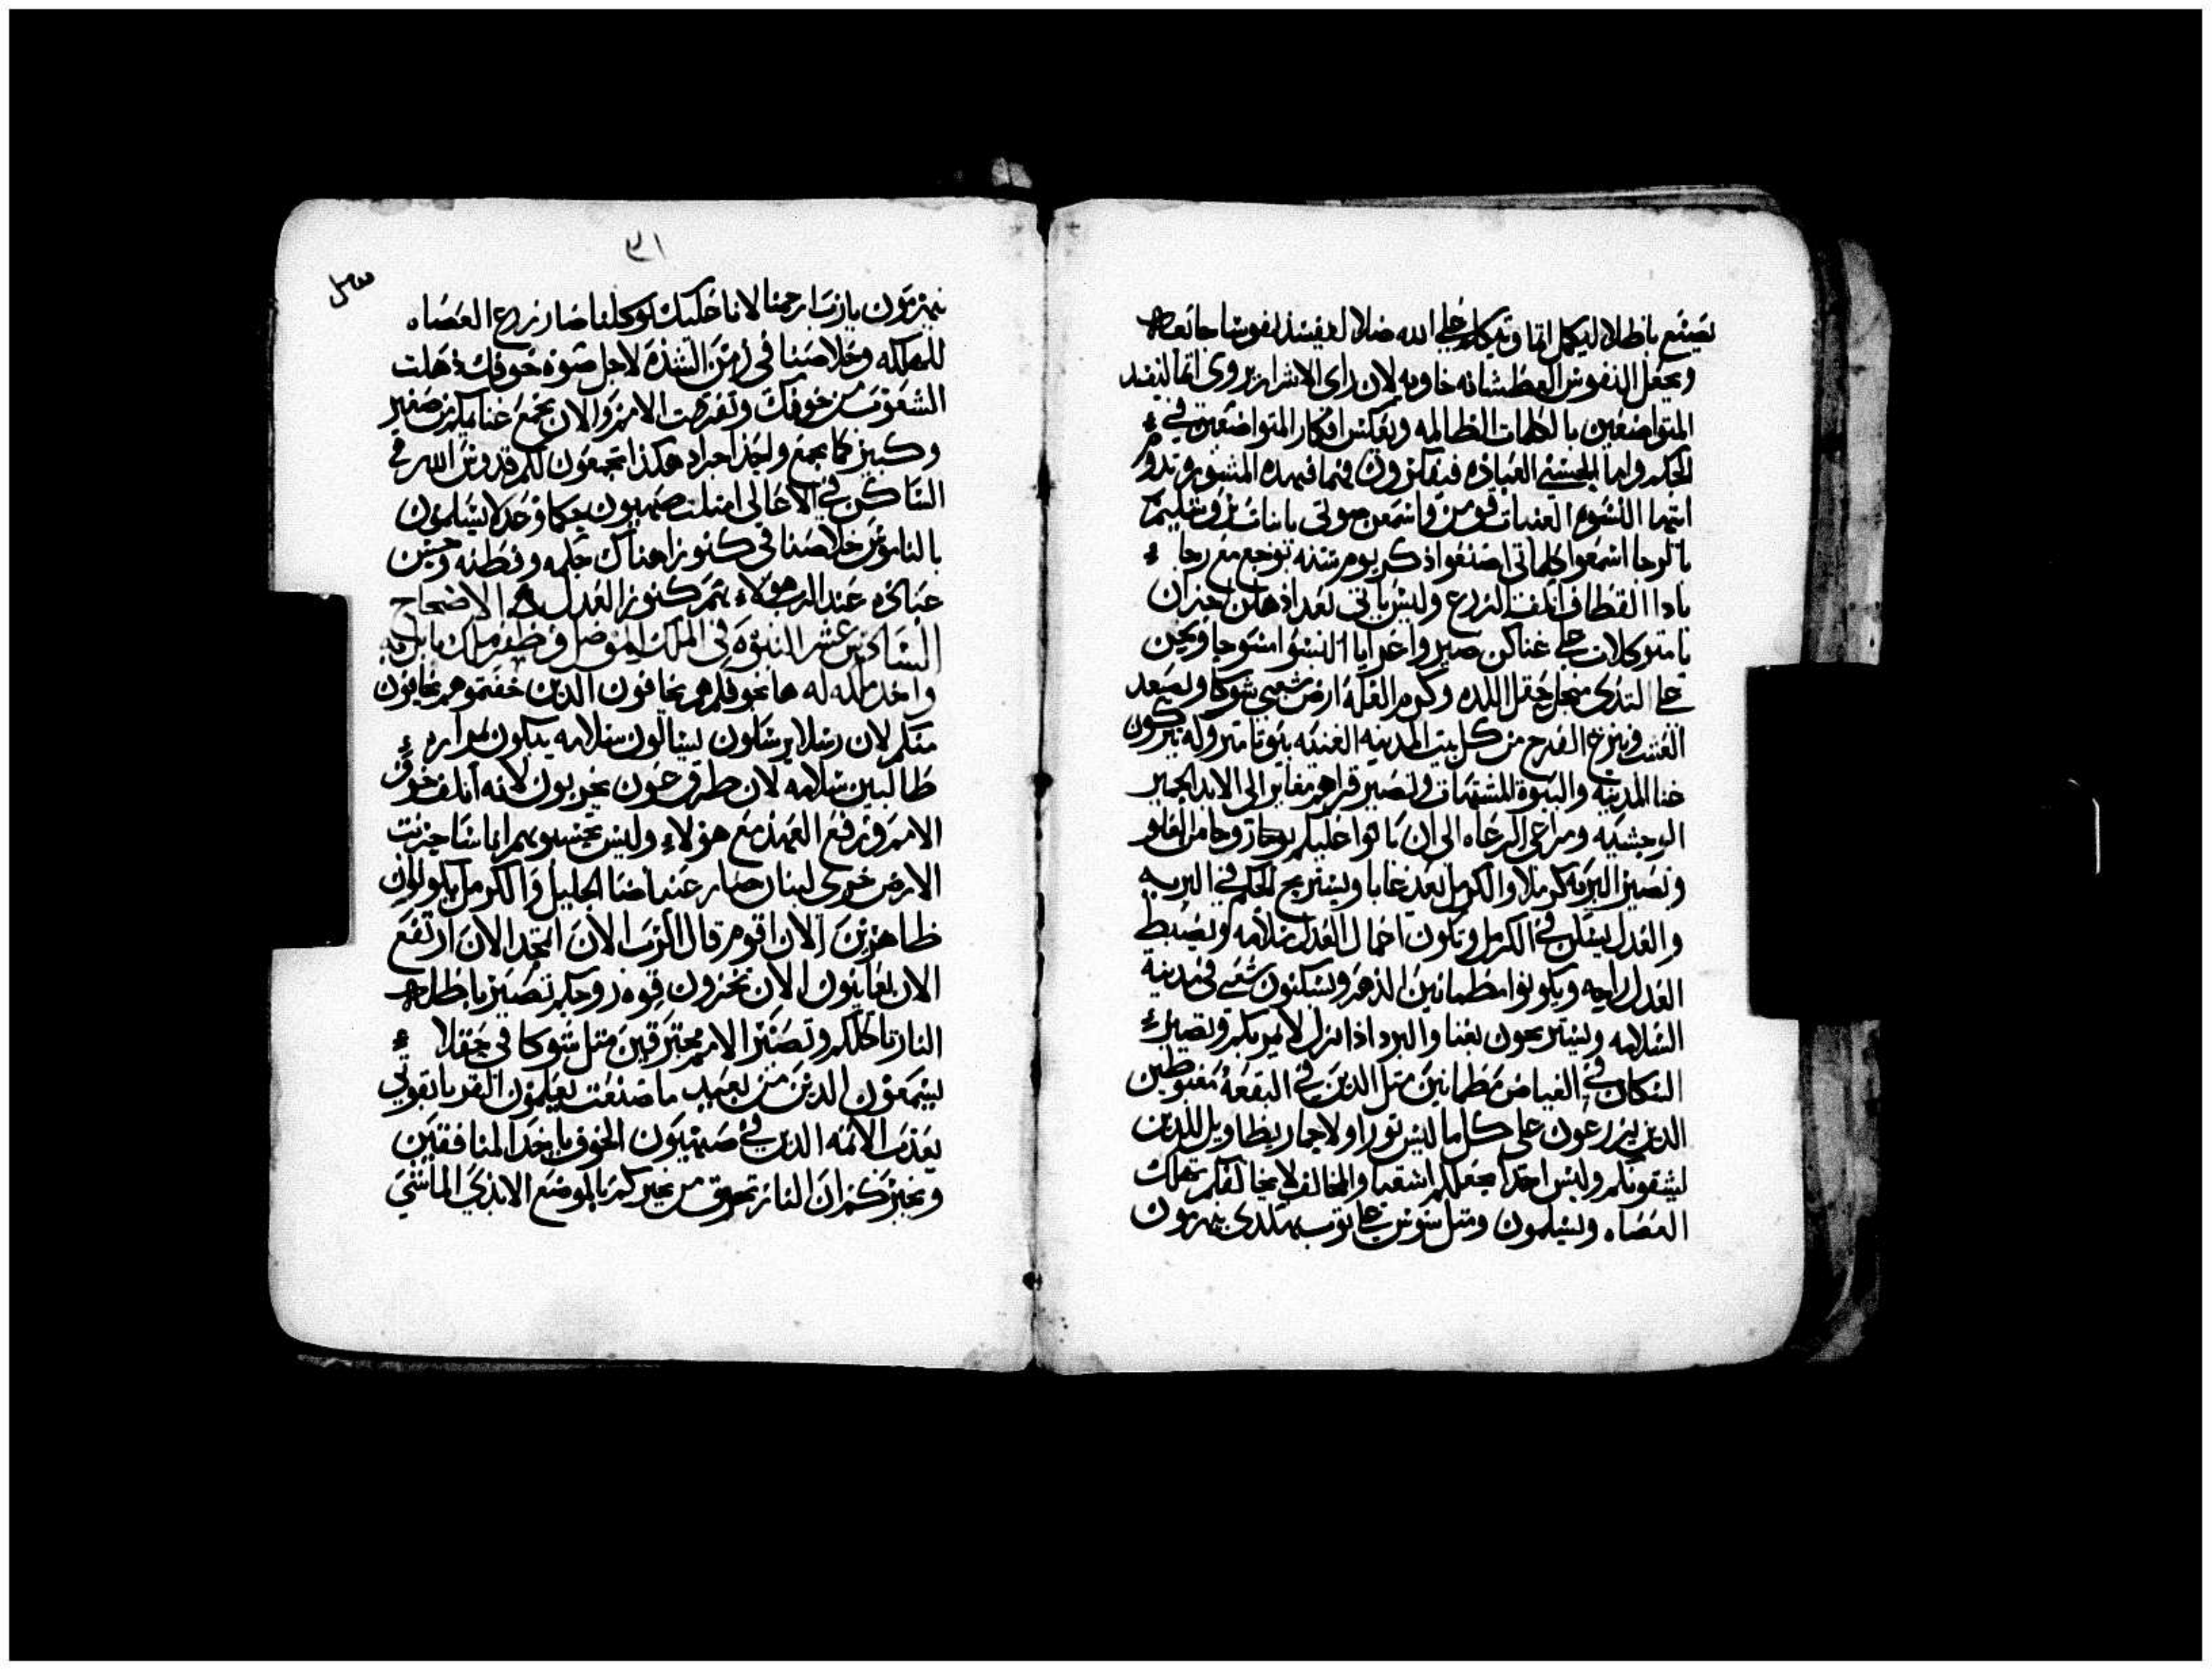 يصنع باطلا ليكمل اثما ويتكلم على الله ضلالا ليفسد نفوسا جائعه
ويجعل النفوس العطشانه خاويه لان راى الاشرار يروى اثما ليفسد
المتواضعين بالكلمات الظالمه ويعكس افكار المتواضعين في
الحكم واما الحسنى العباده فيفكرون فهما فهده المشوره تدوم
ايتها النسوه الغنيات قومن واسمعن صوتى يا بنات يروشليم
بالرجا اسمعوا كلماتى اصنعوا ذكر يوم سنه بوجع مع رجا
باد القطاف اتلف الزرع وليس ياتى بعد اذهلن احزن
يا متوكلات على غناكن صيروا عرايا البسوا مسوحا ونحن
على الثدى من اجل حقل اللده وكرم الغله ارض شعبى شوكا ويصعد
العشب وينزع الفرح من كل بيت المدينه الغنيه بيوتا متروله يتركون
غنا المدينه والبيوة المشتهاة وتصير قراهم مغاير الى الابد الحمير
الوحشيه ومراعى الرعاه الى ان ياتوا عليكم روحا من العلو
وتصير البريه كرملا والكرمل يعد غابا ويستريح الحكم في البريه
والعدل يسكن في الكرمل وتكون اعمال العدل سلامه ويضبط
العدل راحه ويكونوا مطمانين الدهر ويسكنون شعبى في مدينة
السلامه ويستريحون بغنا والبرد اذا نزل لا يمر بكم وتصير
السكان في الغياض مطمانين مثل الدين في البقعه مغبوطين
الدين يزرعون على كل ما ليس ثورا ولا حمار يطا ويل للدين
يشقونكم وليس احدا يجعلكم اشقيا والمخالف لا يخالفكم تهلك
العصاه ويسلمون ومثل سوس على ثوب هكدى ينهزمون
٣١
ينهزمون يا رب ارحمنا لانا عليك توكلنا صار زرع العصاه
للهلكه وخلاصنا في زمن الشده لاجل صوة خوفك ذهلت
الشعوب من خوفك وتفرقت الامم والان يجمع غناكم من صغير
وكبير كما يجمع واحد جراد هكذا تجمعون لكم قدوس الله في
الساكن في الاعالى امتلت صهيون حكما وعدلا يسلمون
بالناموس خلاصنا في كنوزا هناك حكمه وفطنه وحسن
عباده عند الرب هولاء هم كنوز العدل الاصحاح
السادس عشر النبوة في الملك الموصل وظفر ملك بابل به
واخد ملكه له ها بخوفكم هم يخافون الدين خفتموهم يخافون
منكم لان رسلا يرسلون يسالون سلامه يبكون بمراره
طالبين سلامه لان طرق هون يخربون لانه اتلف خوف
الامم ورفع العهد مع هولاء وليس تحسبوهم اناسا حزنت
الارض خزى لبنان صار غياضا الجليل والكرمل يكونون
ظاهرين الان اقوم قال الرب الان اتمجد الان ارتفع
الان تعاينون الان تخزون قوه روحكم تصير باطله
النار تاكلكم وتصير الامم محترقين مثل شوكا في حقلا
يسمعون الدين من بعيد ما صنعت يعلمون القربا بقوتي
يعدب الاثمه الدين في صهيون الخوف ياخد المنافقين
ويخبركم ان النار تحرق من يخبركم بالموضع الابدي الماشي